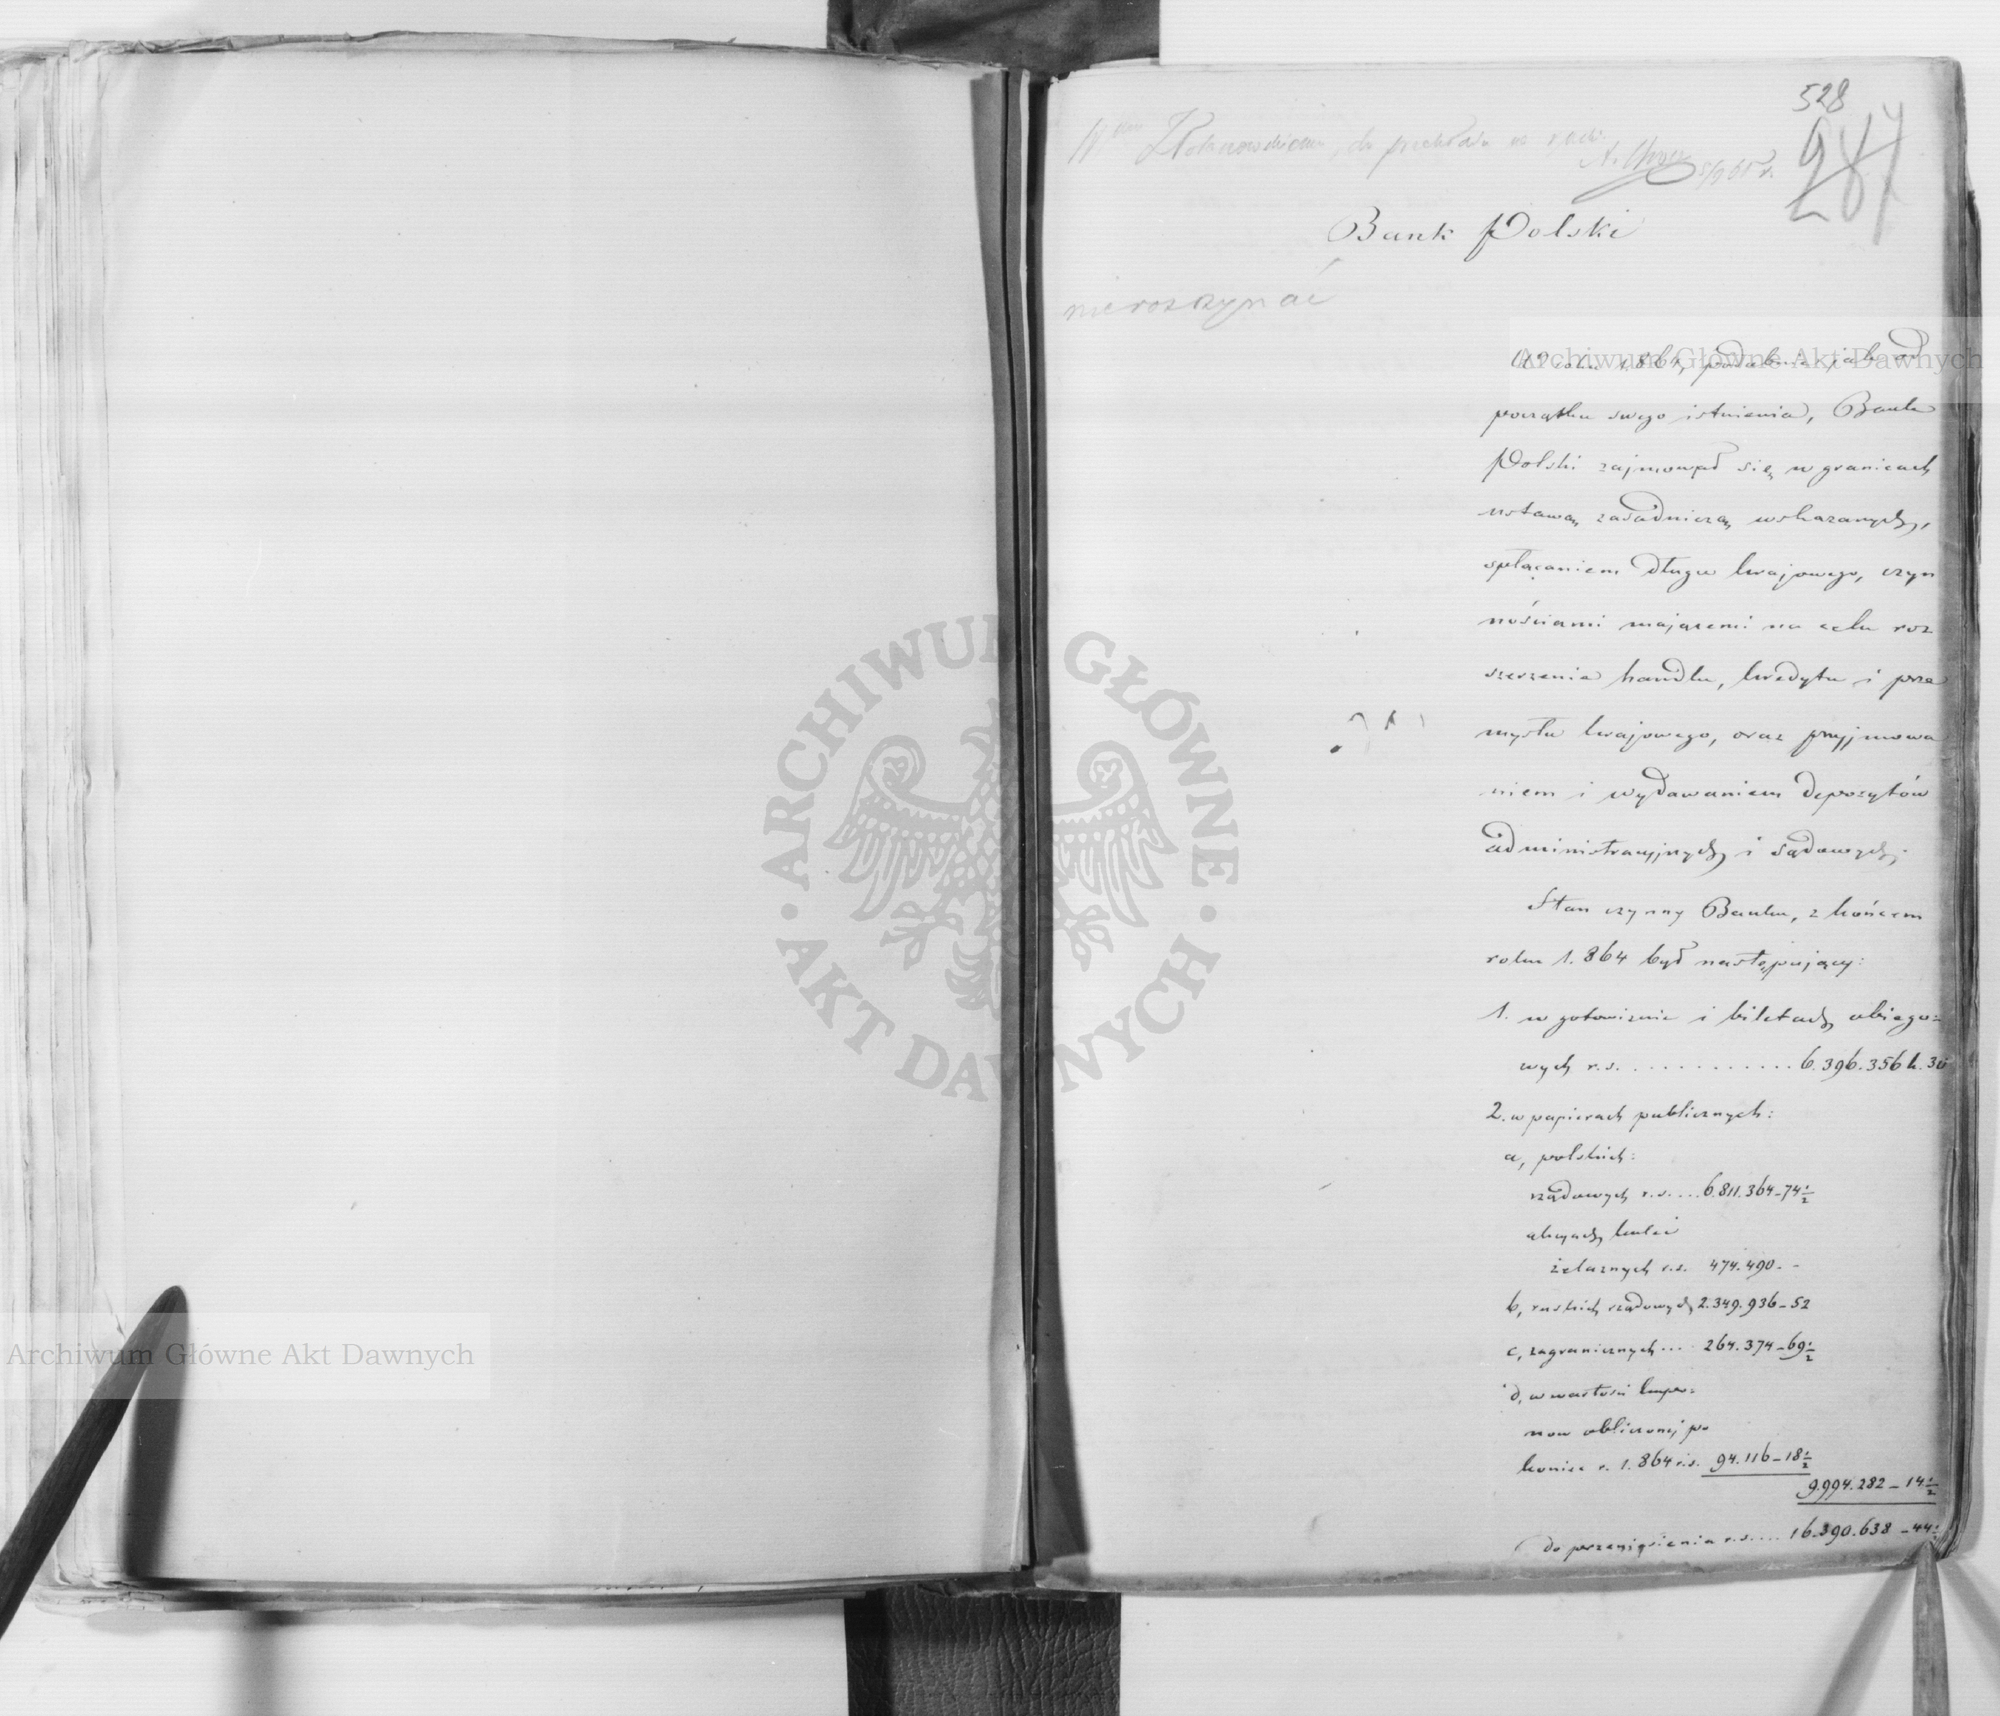 528
287
do przekładu
5/9 65 r.
Bank Polski
nierozrzynać
W roku 1864, podobnie jak od
początku swego istnienia, Bank
Polski zajmował się w granicach
ustawą zasadniczą wskazanych,
spłacaniem długu krajowego, czyn
nościami mającemi na celu roz
szerzenie handlu, kredytu i prze
mysłu krajowego, oraz przyjmowa
niem i wydawaniem depozytów
administracyjnych i sądowych.
Stan czynny Banku, z końcem
roku 1.864 był następujący:
1. w gotowiznie i biletach obiego=
wych r.s. . . . . . . . . . . . . 6.396.356 k. 30
2. w papierach publicznych:
a, polskich:
rządowych r.s. ... 6.811.364-74½
akcyach kolei
żelaznych r.s. 474.490. -
b, ruskich rządowych 2.349.936-52
c, zagranicznych ... 264.374-69½
d, w wartości kupo=
now obliczonej po
koniec r. 1.864 r.s. 94.116-18½
9.994.282-14½
do przeniesienia r.s. .... 16.390.638-44½
Archiwum Główne Akt Dawnych
Archiwum Główne Akt Dawnych
ARCHIWUM GŁÓWNE · AKT DAWNYCH ·